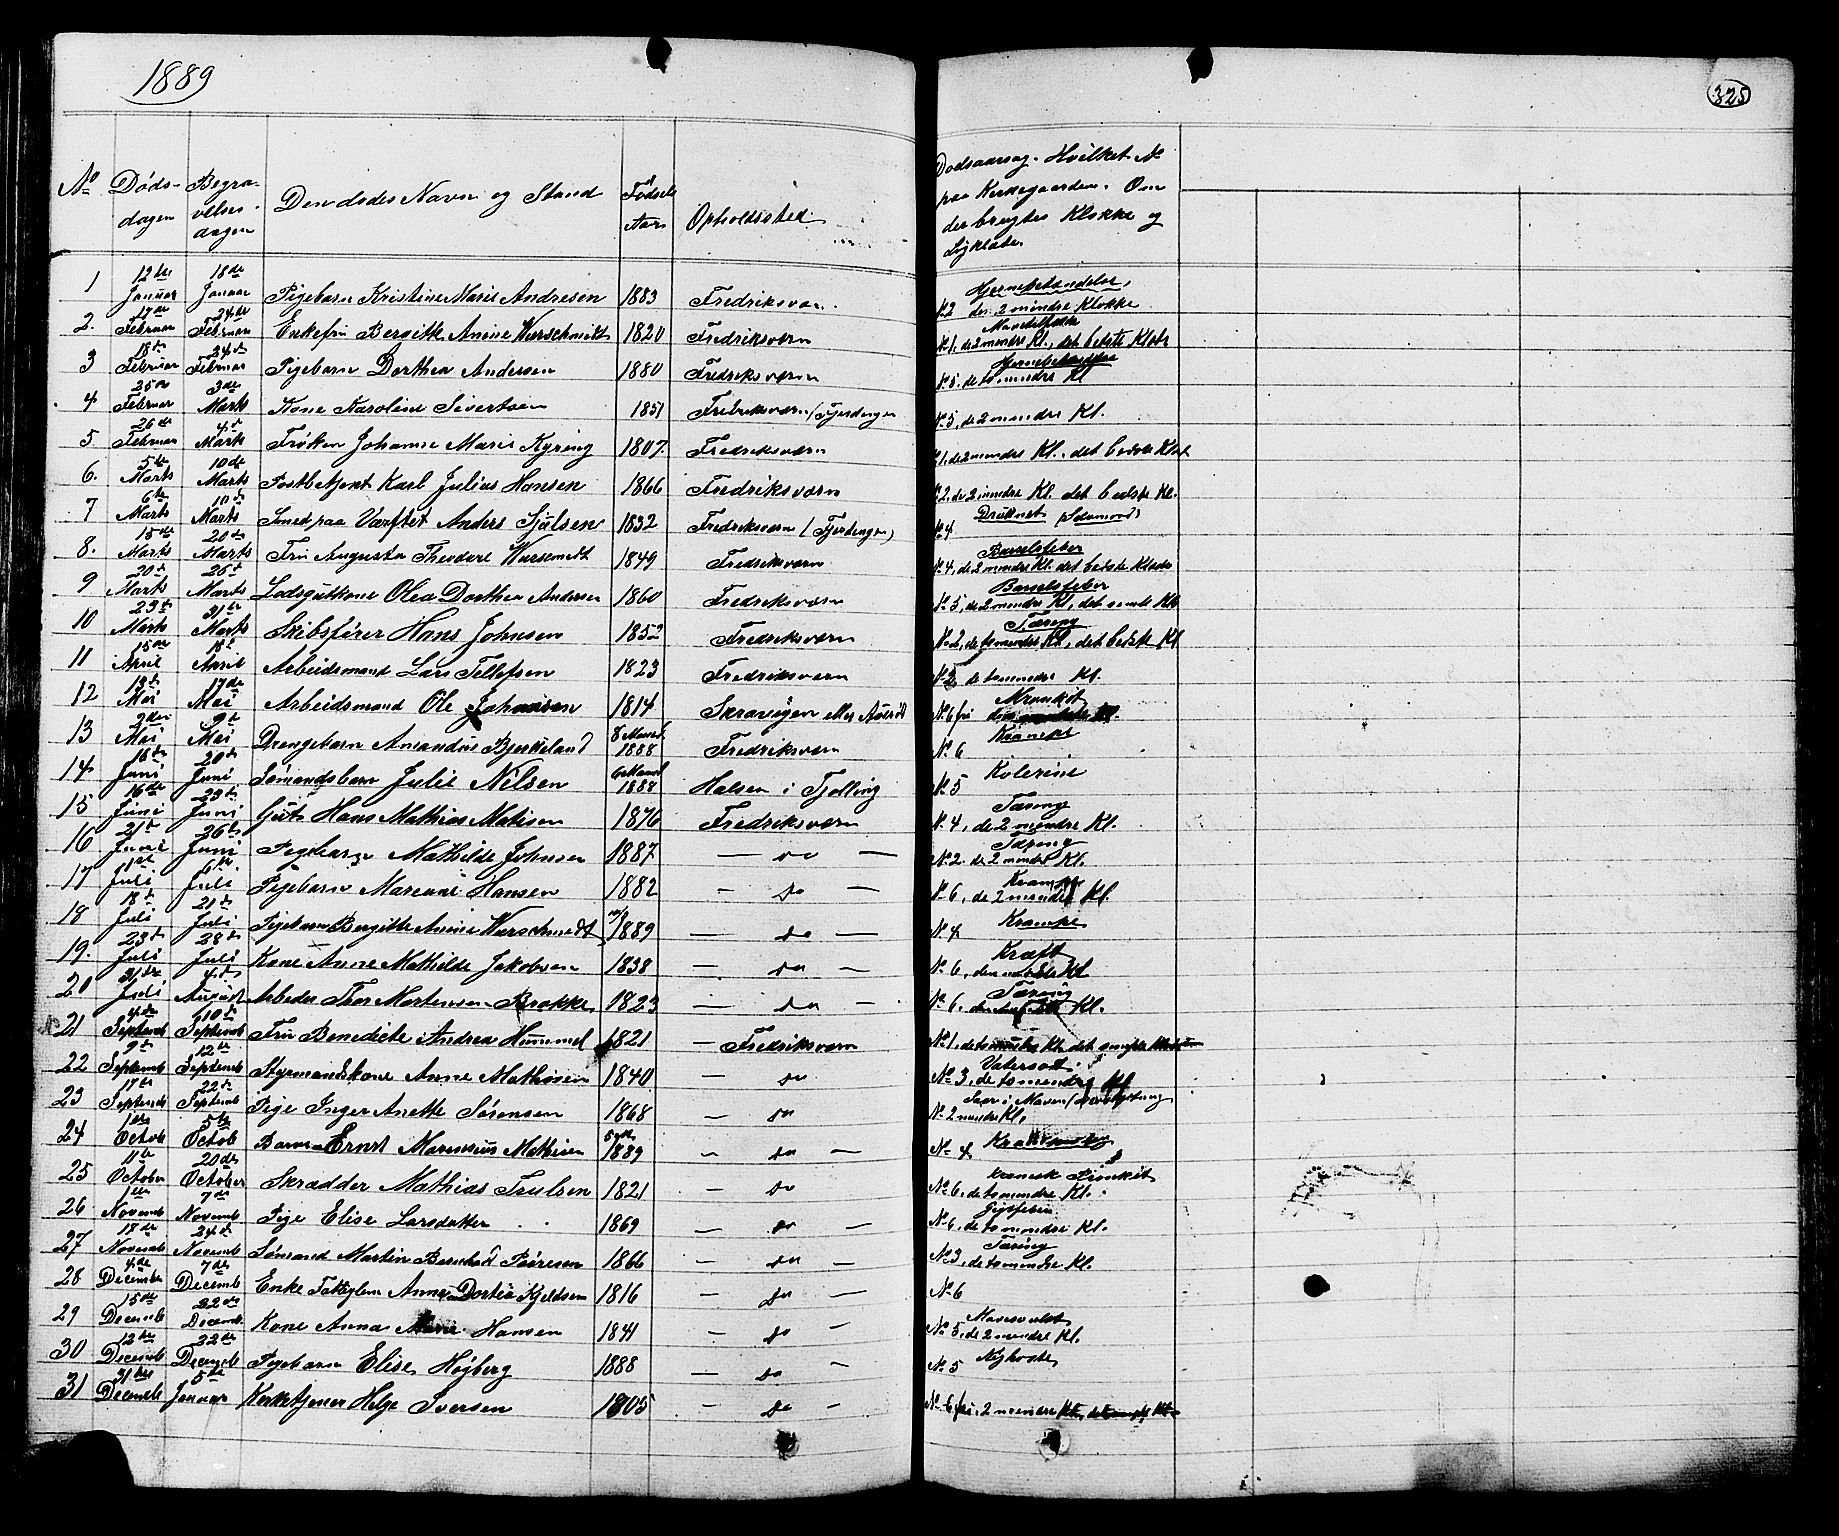 1889
325
No Døds-dagen Begra-velses-dagen Den dødes Navn og Stand Fødsels Aar Opholdssted Dødsaarsag. Hvilket No paa Kirkegaarden. Om der brugtes Klokke og Ligklæde.
1 12te Januar 18de Januar Pigebarn Kristine Marie Andresen 1883 Fredriksværn. Hjernebetændelse, No 2 den 2 mindre Klokke
2. 17de Februar 24de Februar Enkefru Bergitte Anine Warschmidt 1820 Fredriksværn No 1, de 2 mindre Kl., det bedste Klæde
3 18de Februar 24de Februar Pigebarn Dorthea Andersen 1880 Fredriksværn No 5. de to mindre Kl
4 25de Februar 3de Marts Kone Karoline Sivertsen 1851 Fredriksværn (Fjerdingen No 5, de 2 mindre Kl.
5 26de Februar 4de Marts Frøken Johanne Marie Kyring 1807. Fredriksværn No 1. de 2 mindre Kl. det bedste Klæde
6. 5te Marts 10de Marts Postbetjent Karl Julius Hansen 1866 Fredriksværn No 2. de 2 mindre Kl. det bedste Kl.
7 6te Marts 10de Marts Smed paa Værftet Anders Sjulsen 1832 Fredriksværn (Fjerdingen) Druknet No 4
8. 15de Marts 20de Marts Fru Augusta Theodore Warsemidt 1849 Fredriksværn Barselfeber No 4, de 2 mindre Kl. det bedste Klæde
9 20de Marts 26de Marts Lodsgutkone Olea Dorthea Andersen 1860 Fredriksværn Barselsfeber No 5, de 2 mindre Kl, det Kl.
10 23de Marts 31te Marts Skibsfører Hans Johnsen 1852 Fredriksværn Tæring No 2, de to mindre Kl., det bedste Kl
11 15de April 18de April Arbeidsmand Lars Tellefsen 1823 Fredriksværn No 2, de to mindre Kl.
12 13de Mai 17de Mai Arbeidsmand Ole Johannsen 1814 Skravigen eller No 6 fri
13 2den Mai 9de Mai Drengebarn Amandus Bjerkeland 8 Maned 1888 Fredriksværn Krampe No 6
14 16de Juni 20de Juni Sømandsbarn Julie Nilsen 1888 Halsen i Tjølling Kolerine No 5
15 16de Juni 23de Juni Gut Hans Mathias Matisen 1876 Fredriksværn Tæring No 4, de 2 mindre Kl.
16 21de Juni 26de Juni Pigebarn Mathilde Johnsen 1887 — do — Tæring No 2. de 2 mindre Kl.
17 1ste Juli 6te Juli Pigebarn Mareane Hansen 1882 — do — Krampe No 6, de 2 mindre Kl.
18 18de Juli 21de Juli Pigebarn Bergitte Anine Warschmidt 1889 — do — Krampe No 4
19. 23de Juli 28de Juli Kone Anne Mathilde Jakobsen 1838 — do — Kræft No 6, den mindre Kl
20 31te Juli 4de August Arbeider Thor Mortensen Brække 1823 — do — Tæring No 6. Kl.
21 4de Septemb 10de Septemb Fru Benedicte Andrea Hummel 1821 — Fredriksværn No 1, de to mindre Kl. det
22 9de Septemb 12te Septemb Styrmandskone Anne Mathisen 1840 — do Vatersot No 3, de to mindre Kl
23 17de Septemb 22de Septemb Pige Inger Anette Sørensen 1868 — do Saar i Maven No 2 mindre Kl,
24 1ste Octob 5te Octob Barn Ernst Marensius Mathisen 1889 — do — No 4
25 11te October 20de October Skrædder Mathias Trulsen 1821 — do kronisk No 6, de to mindre Kl.
26 1ste Novemb 7de Novemb Pige Elise Larsdatter 1869 — do — Gigtfeber No 6, de to mindre Kl.
27 18de Novemb 24de Novemb Sømand Martin Bernhard Pedersen 1866 — do — Tæring No 3, de to mindre Kl.
28 4de December 7de Decemb Enke Fattiglem Anne Dortea Kjeldsen 1816 — do — No 6
29 15de Decemb 22de Decemb. Kone Anna Marie Hansen 1841 — do — No 5. de 2 mindre Kl.
30 12te Decemb 22de Decemb Pigebarn Elise Høyberg 1888 — do — Kighoste No 5
31 31te Decemb 5te Januar Kirketjener Helge Iversen 1805 — do — No 6 fri. 2 mindre Kl.